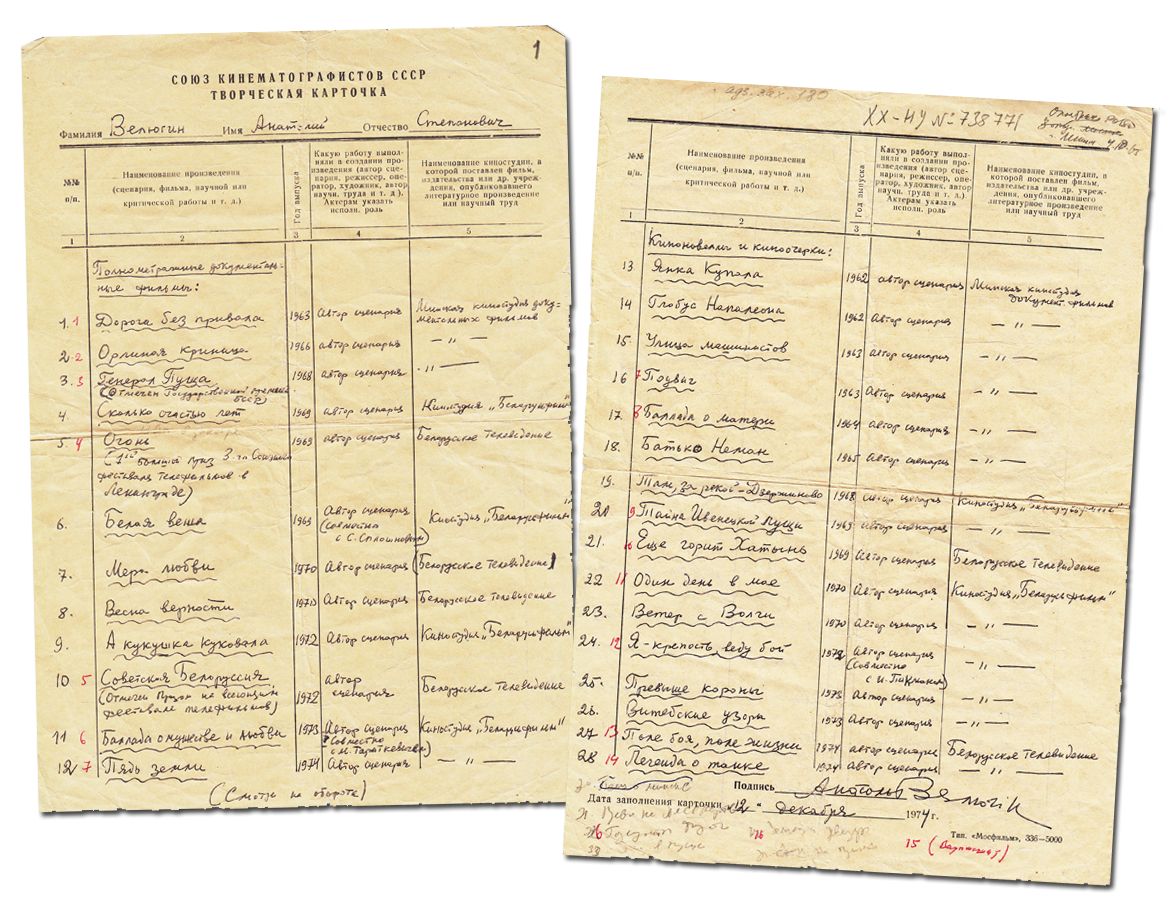 1
СОЮЗ КИНЕМАТОГРАФИСТОВ СССР
ТВОРЧЕСКАЯ КАРТОЧКА
Фамилия Велюгин Имя Анатолий Отчество Степанович
№№ п/п. Наименование произведения (сценария, фильма, научной или критической работы и т. д.) Год выпуска Какую работу выполняли в создании произведения (автор сценария, режиссер, оператор, художник, автор научн. труда и т. д.). Актерам указать исполн. роль Наименование киностудии, в которой поставлен фильм, издательства или др. учреждения, опубликовавшего литературное произведение или научный труд
1 2 3 4 5
Полнометражные документальные фильмы:
1. 1 Дорога без привала 1963 Автор сценария Минская киностудия документальных фильмов
2. 2 Орлиная криница 1966 автор сценария — „ —
3. 3 Генерал Пуща 1968 автор сценария — „ —
(Отмечен Государственной премией БССР)
4. Сколько счастью лет 1969 автор сценария Киностудия „Беларусьфильм"
5. 4 Огонь 1969 автор сценария Белорусское телевидение
(1ый большой приз 3-го Союзного
фестиваля телефильмов в
Ленинграде)
6. Белая вежа 1969 Автор сценария (совместно с С. Сплошновым) Киностудия „Беларусьфильм"
7. Мера любви 1970 Автор сценария (Белорусское телевидение)
8. Весна верности 1970 Автор сценария Белорусское телевидение
9. А кукушка куковала 1972 Автор сценария Киностудия „Беларусьфильм"
10 5 Советская Белоруссия 1972 автор сценария Белорусское телевидение
(Отмечен Призом на всесоюзн. фестивале телефильмов)
11 6 Баллада о мужестве и любви 1973 Автор сценария (совместно с М. Тараткевичем) Киностудия „Беларусьфильм"
12 7 Пядь земли 1974 Автор сценария — „ —
(Смотри на обороте)
XX-НУ № 738771
№№ п/п. Наименование произведения (сценария, фильма, научной или критической работы и т. д.) Год выпуска Какую работу выполняли в создании произведения (автор сценария, режиссер, оператор, художник, автор научн. труда и т. д.) Актерам указать исполн. роль Наименование киностудии, в которой поставлен фильм, издательства или др. учреждения, опубликовавшего литературное произведение или научный труд
1 2 3 4 5
Киноновеллы и киноочерки:
13. Янка Купала 1962 автор сценария Минская киностудия документ. фильмов
14 Глобус Напалеона 1962 Автор сценария — „ —
15. Улица машинистов 1963 автор сценария — „ —
16 7 Подвиг 1963 Автор сценария — „ —
17. 8 Баллада о матери 1964 автор сценария — „ —
18. Батько Неман 1965 автор сценария — „ —
19. Там, за рекой - Дзержиново 1968 автор сценария Киностудия „Беларусьфильм"
20 9 Тайна Ивенецкой пущи 1969 автор сценария — „ —
21. Еще горит Хатынь 1969 Автор сценария Белорусское телевидение
22 11 Один день в мае 1970 Автор сценария Киностудия „Беларусьфильм"
23. Ветер с Волги 1970 Автор сценария — „ —
24. 12 Я-крепость, веду бой 1972 Автор сценария (совместно — „ —
25. Превыше короны 1973 Автор сценария — „ —
26. Витебские узоры 1973 Автор сценария — „ —
27 13 Поле боя, поле жизни 1974 автор сценария Белорусское телевидение
28 14 Легенда о танке 1974 Автор сценария — „ —
Подпись Анатоль Вялюгін
Дата заполнения карточки „12" декабря 1974 г.
Тип. «Мосфильм», 336—5000
15